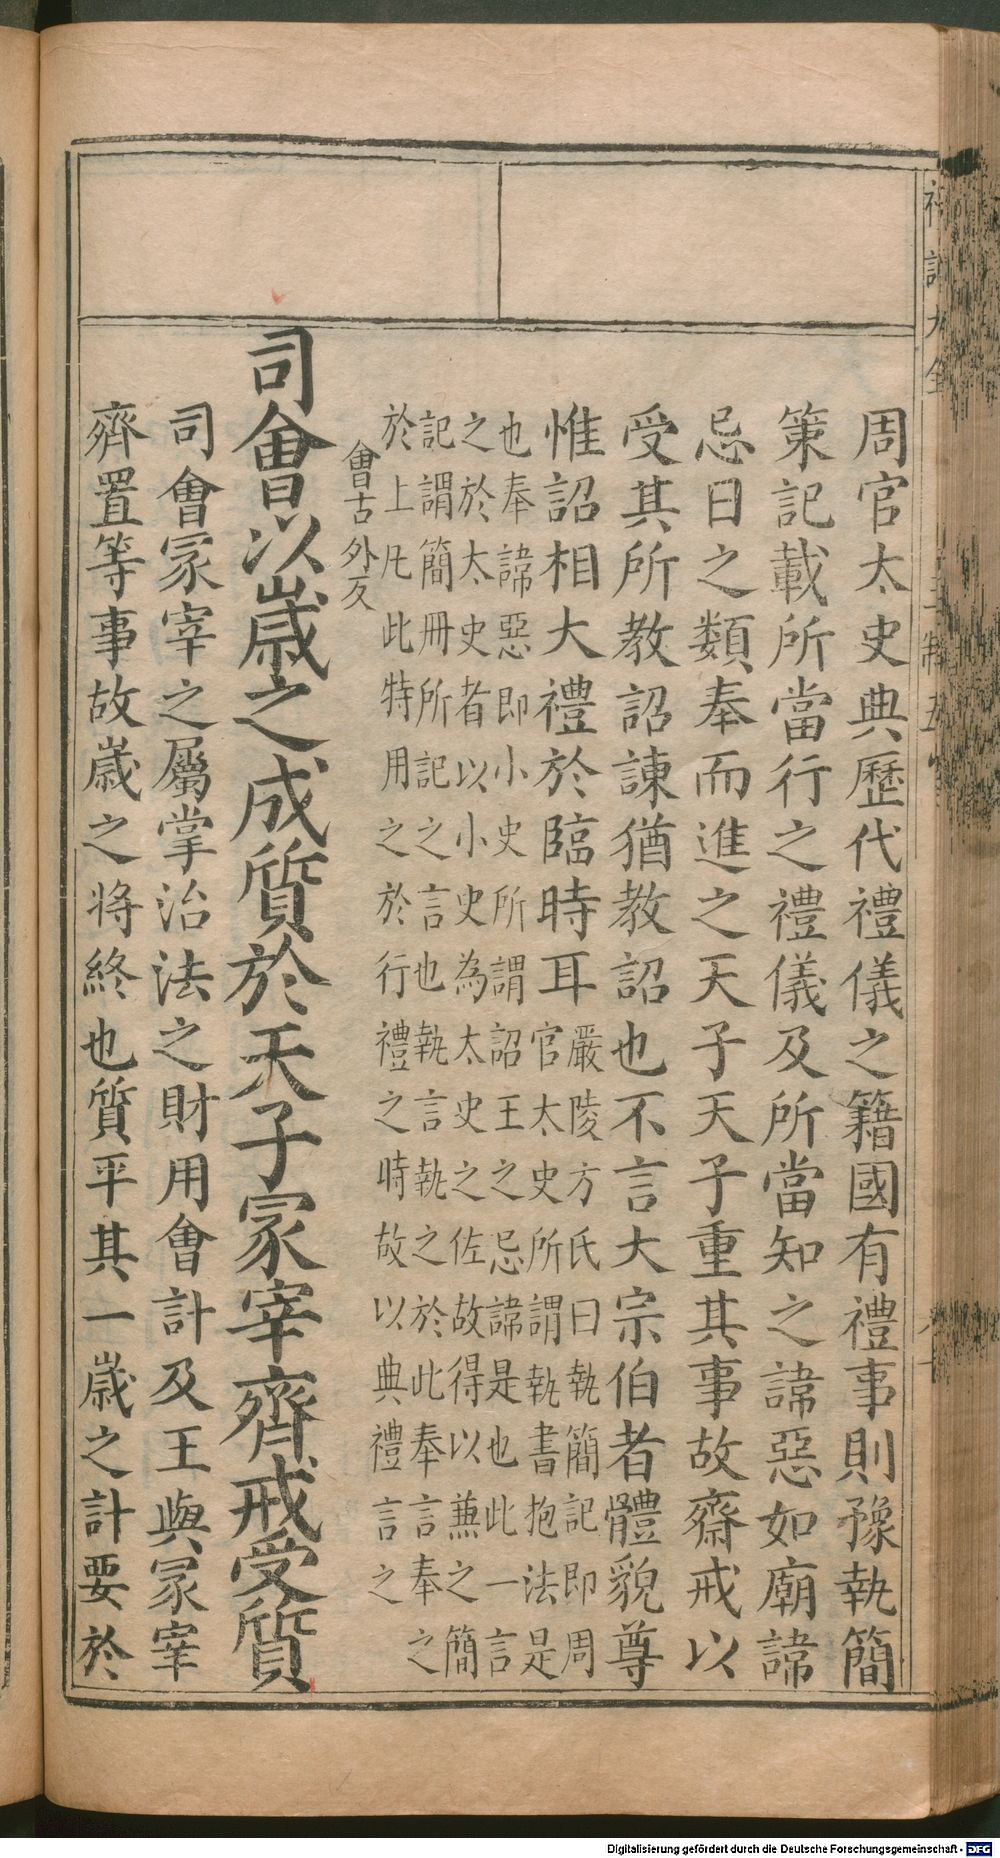 周官太史典歷代禮儀之籍國有禮事則豫執簡
策記載所當行之禮儀及所當知之諱惡如廟諱
忌日之類奉而進之天子天子重其事故齋戒以
受其所教詔諫猶教詔也不言大宗伯者體貌尊
惟詔相大禮於臨時耳
嚴陵方氏曰執簡記即周
官太史所謂執書抱法是
也奉諱惡即小史所謂詔王之忌諱是也此一言
之於太史者以小史為太史之佐故得以兼之簡
記謂簡冊所記之言也執言執之於此奉言奉之
於上凡此特用之於行禮之時故以典禮言之
會古外反
司會以歲之成質於天子冡宰齊戒受質
司會冡宰之屬掌治法之財用會計及王與冡宰
齊置等事故歲之將終也質平其一歲之計要於
Digitalisierung gefördert durch die Deutsche Forschungsgemeinschaft - DFG